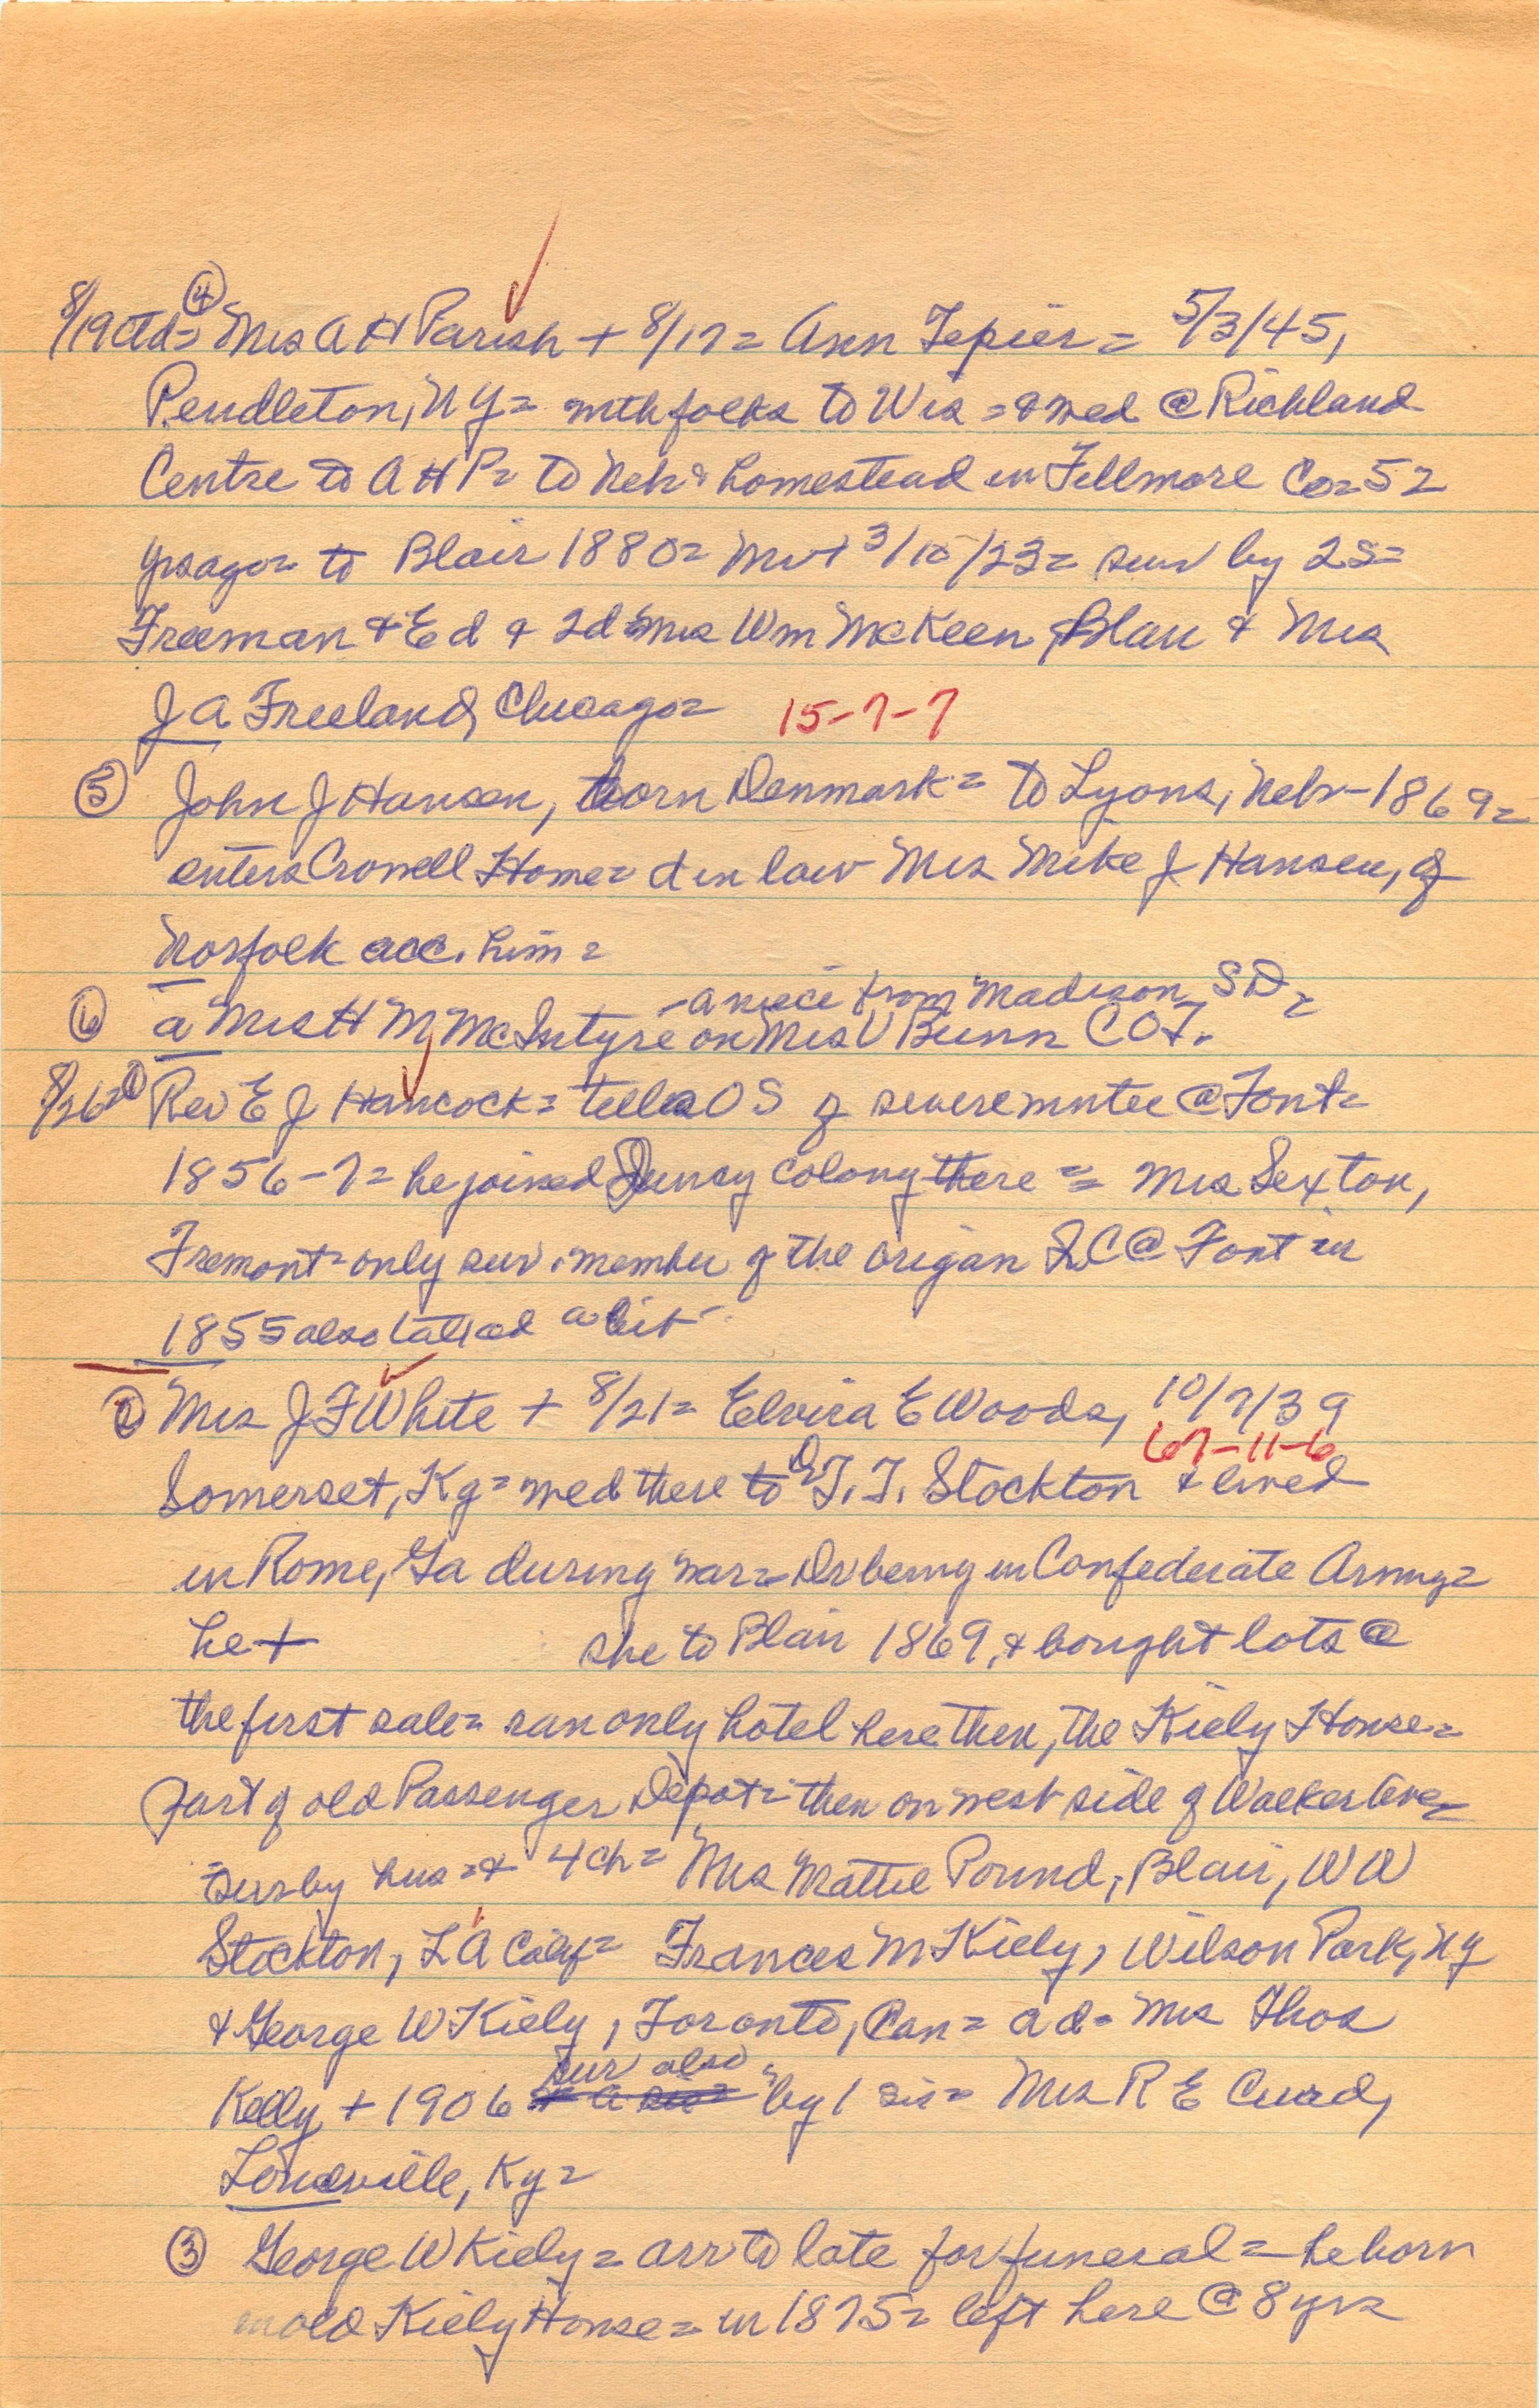 8/19 ctd= ④ Mrs A H Parish + 8/17= Ann Tepier= 5/3/45,
Pendleton, NY= with folks to Wis = & med @ Richland
Centre to A H P= to Neb & homestead in Fillmore Co= 52
yrs ago= to Blair 1880= Mr + 3/10/23= surv by 2s=
Freeman & Ed & 2d Mrs Wm McKeen, Blair & Mrs
J A Freeland, Chicago= 15-7-7
⑤ John J Hansen, born Denmark= to Lyons, Nebr- 1869=
enters Crowell Home= d in law Mrs Mike J Hansen, of
Norfolk acc. him=
- a niece from Madison, SD=
⑥ a Mrs H M McIntyre on Mrs V Bunn COJ.
8/26= ① Rev E J Hancock= tells OS of severe winter @ Font=
1856-7= he joined Quincy Colony there = Mrs Sexton,
Fremont- only surv. member of the origan QC @ Font in
1855 also talked a bit-
② Mrs J F White + 8/21= Elvira E Woods, 10/7/39
67-11-6
Somerset, Ky= med there to Dr T. T. Stockton & lived
in Rome, Ga during war= Dr being in Confederate Army=
he + she to Blair 1869, & bought lots @
the first sale= ran only hotel here then, the Kiely House=
part of old Passenger Depot= then on west side of Walker Ave=
surv by hus= & 4 ch= Mrs Mattie Pound, Blair, W W
Stockton, L A Calif= Frances M Kiely, Wilson Park, NY
& George W Kiely, Toronto, Can= a d- Mrs Thos
sur also
Kelly + 1906 by 1 sis= Mrs R E Curd,
Louisville, Ky=
③ George W Kiely= arr to late for funeral= he born
in old Kiely House= in 1875= left here @ 8 yrs